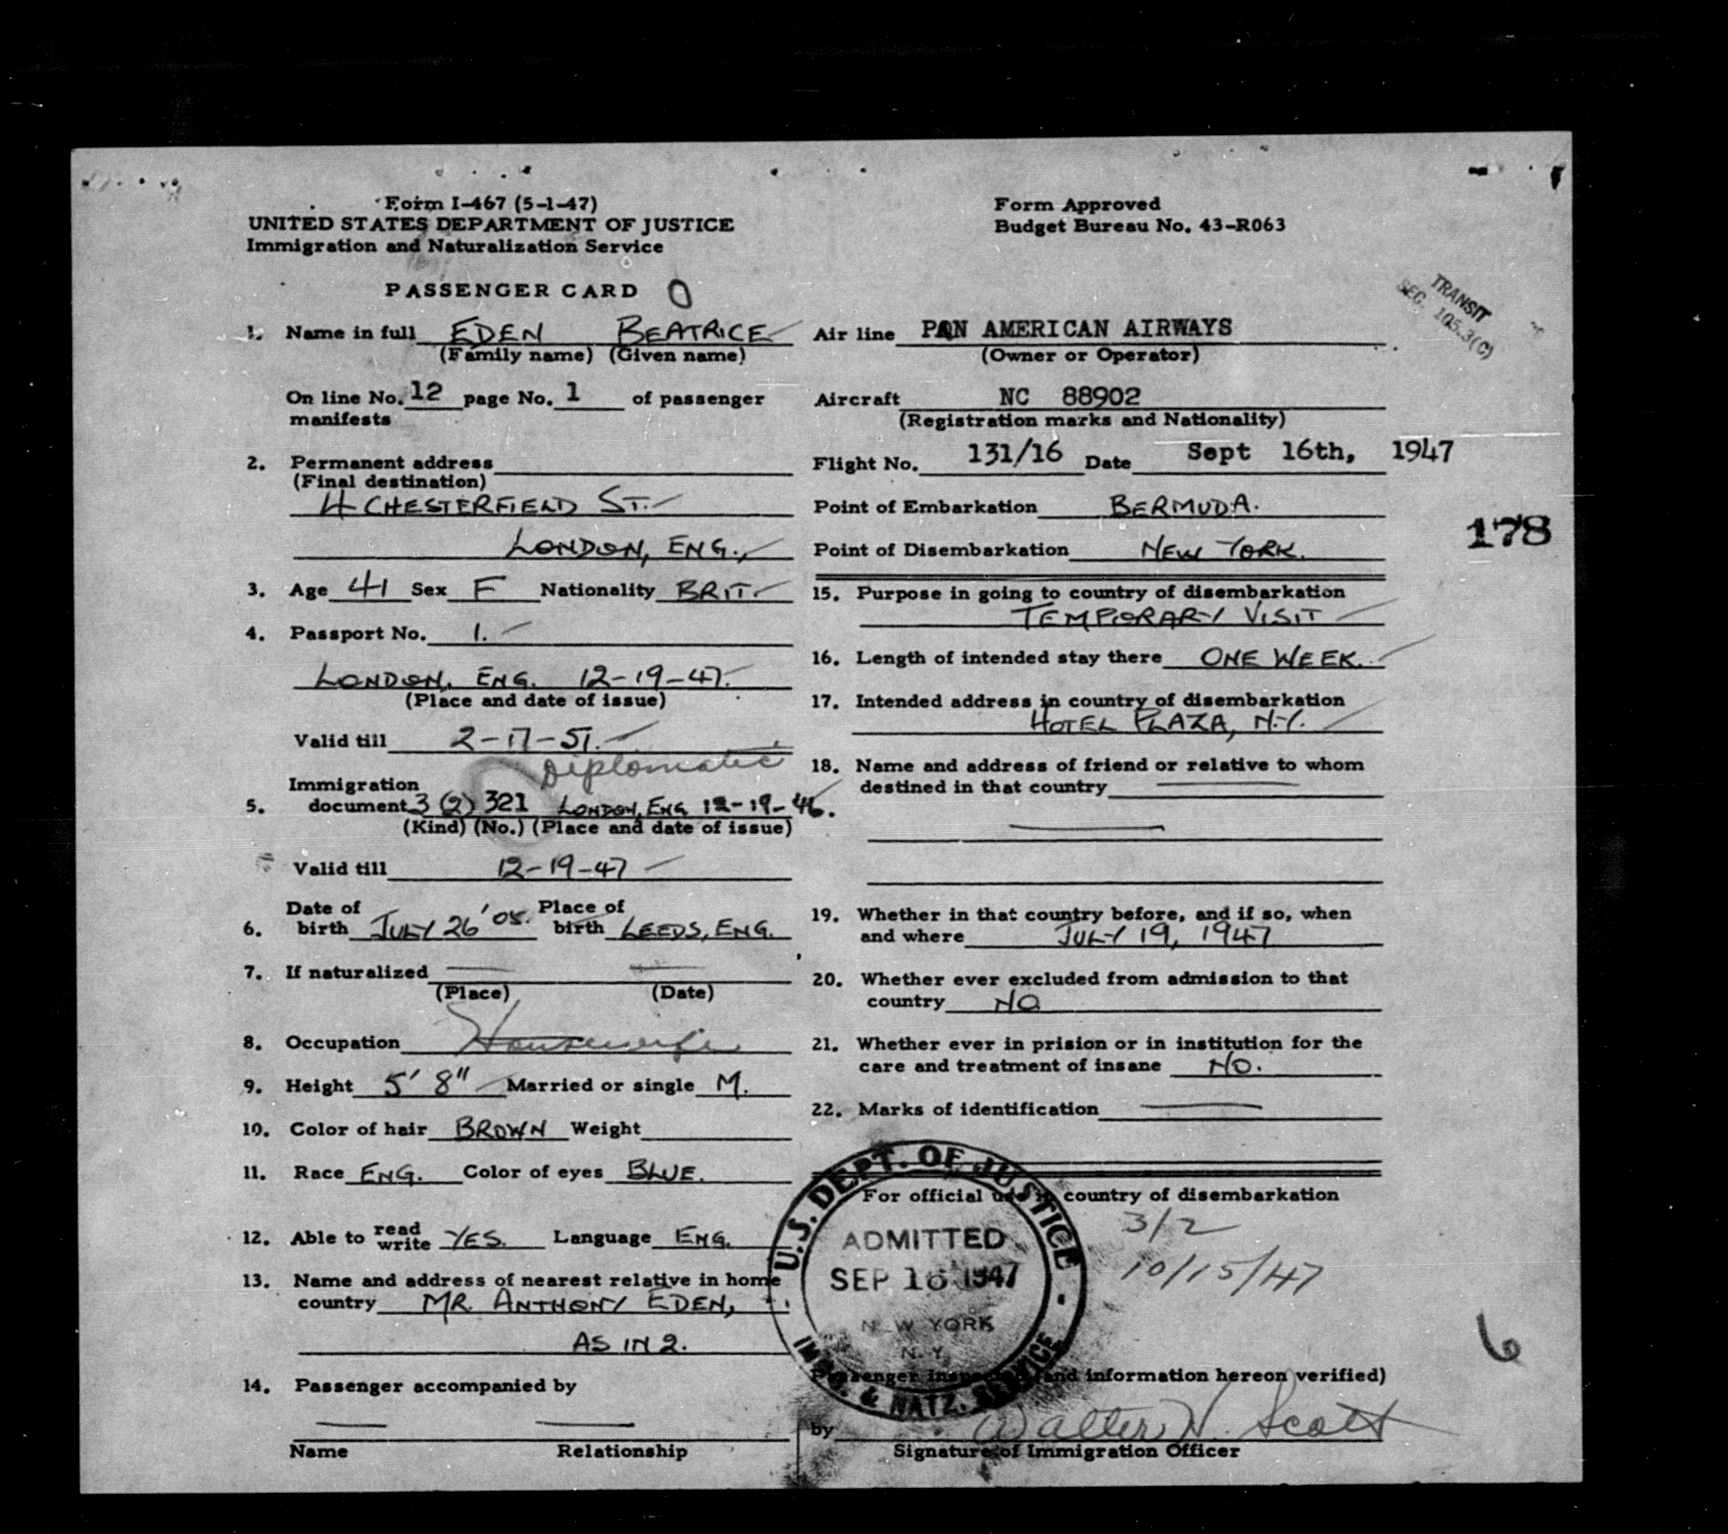 Form I-467 (5-1-47)
UNITED STATES DEPARTMENT OF JUSTICE
Immigration and Naturalization Service
Form Approved
Budget Bureau No. 43-R063
PASSENGER CARD 0
TRANSIT
SEC. 105.3(C)
1. Name in full EDEN BEATRICE
(Family name) (Given name)
On line No. 12 page No. 1 of passenger
manifests
2. Permanent address
(Final destination)
4 CHESTERFIELD ST.
LONDON, ENG.,
3. Age 41 Sex F Nationality BRIT.
4. Passport No. 1.
LONDON, ENG. 12-19-47.
(Place and date of issue)
Valid till 2-17-51.
Diplomatic
Immigration
5. document 3 (2) 321 LONDON, ENG 12-19-46.
(Kind) (No.) (Place and date of issue)
Valid till 12-19-47
Date of Place of
6. birth JULY 26 '05. birth LEEDS, ENG.
7. If naturalized
(Place) (Date)
8. Occupation Housewife
9. Height 5' 8" Married or single M.
10. Color of hair BROWN Weight
11. Race ENG. Color of eyes BLUE.
12. Able to read write YES. Language ENG.
13. Name and address of nearest relative in home
country MR. ANTHONY EDEN,
AS IN 2.
14. Passenger accompanied by
Name Relationship
Air line PAN AMERICAN AIRWAYS
(Owner or Operator)
Aircraft NC 88902
(Registration marks and Nationality)
Flight No. 131/16 Date Sept 16th, 1947
Point of Embarkation BERMUDA.
178
Point of Disembarkation NEW YORK.
15. Purpose in going to country of disembarkation
TEMPORARY VISIT
16. Length of intended stay there ONE WEEK.
17. Intended address in country of disembarkation
HOTEL PLAZA, N.Y.
18. Name and address of friend or relative to whom
destined in that country
19. Whether in that country before, and if so, when
and where JULY 19, 1947
20. Whether ever excluded from admission to that
country NO
21. Whether ever in prision or in institution for the
care and treatment of insane NO.
22. Marks of identification
For official use in country of disembarkation
3/2
10/15/47
U.S. DEPT. OF JUSTICE
ADMITTED
SEP 16 1947
NEW YORK
N.Y.
IMM. & NATZ. SERVICE
6
Passenger inspected (and information hereon verified)
by Walter N. Scott
Signature of Immigration Officer